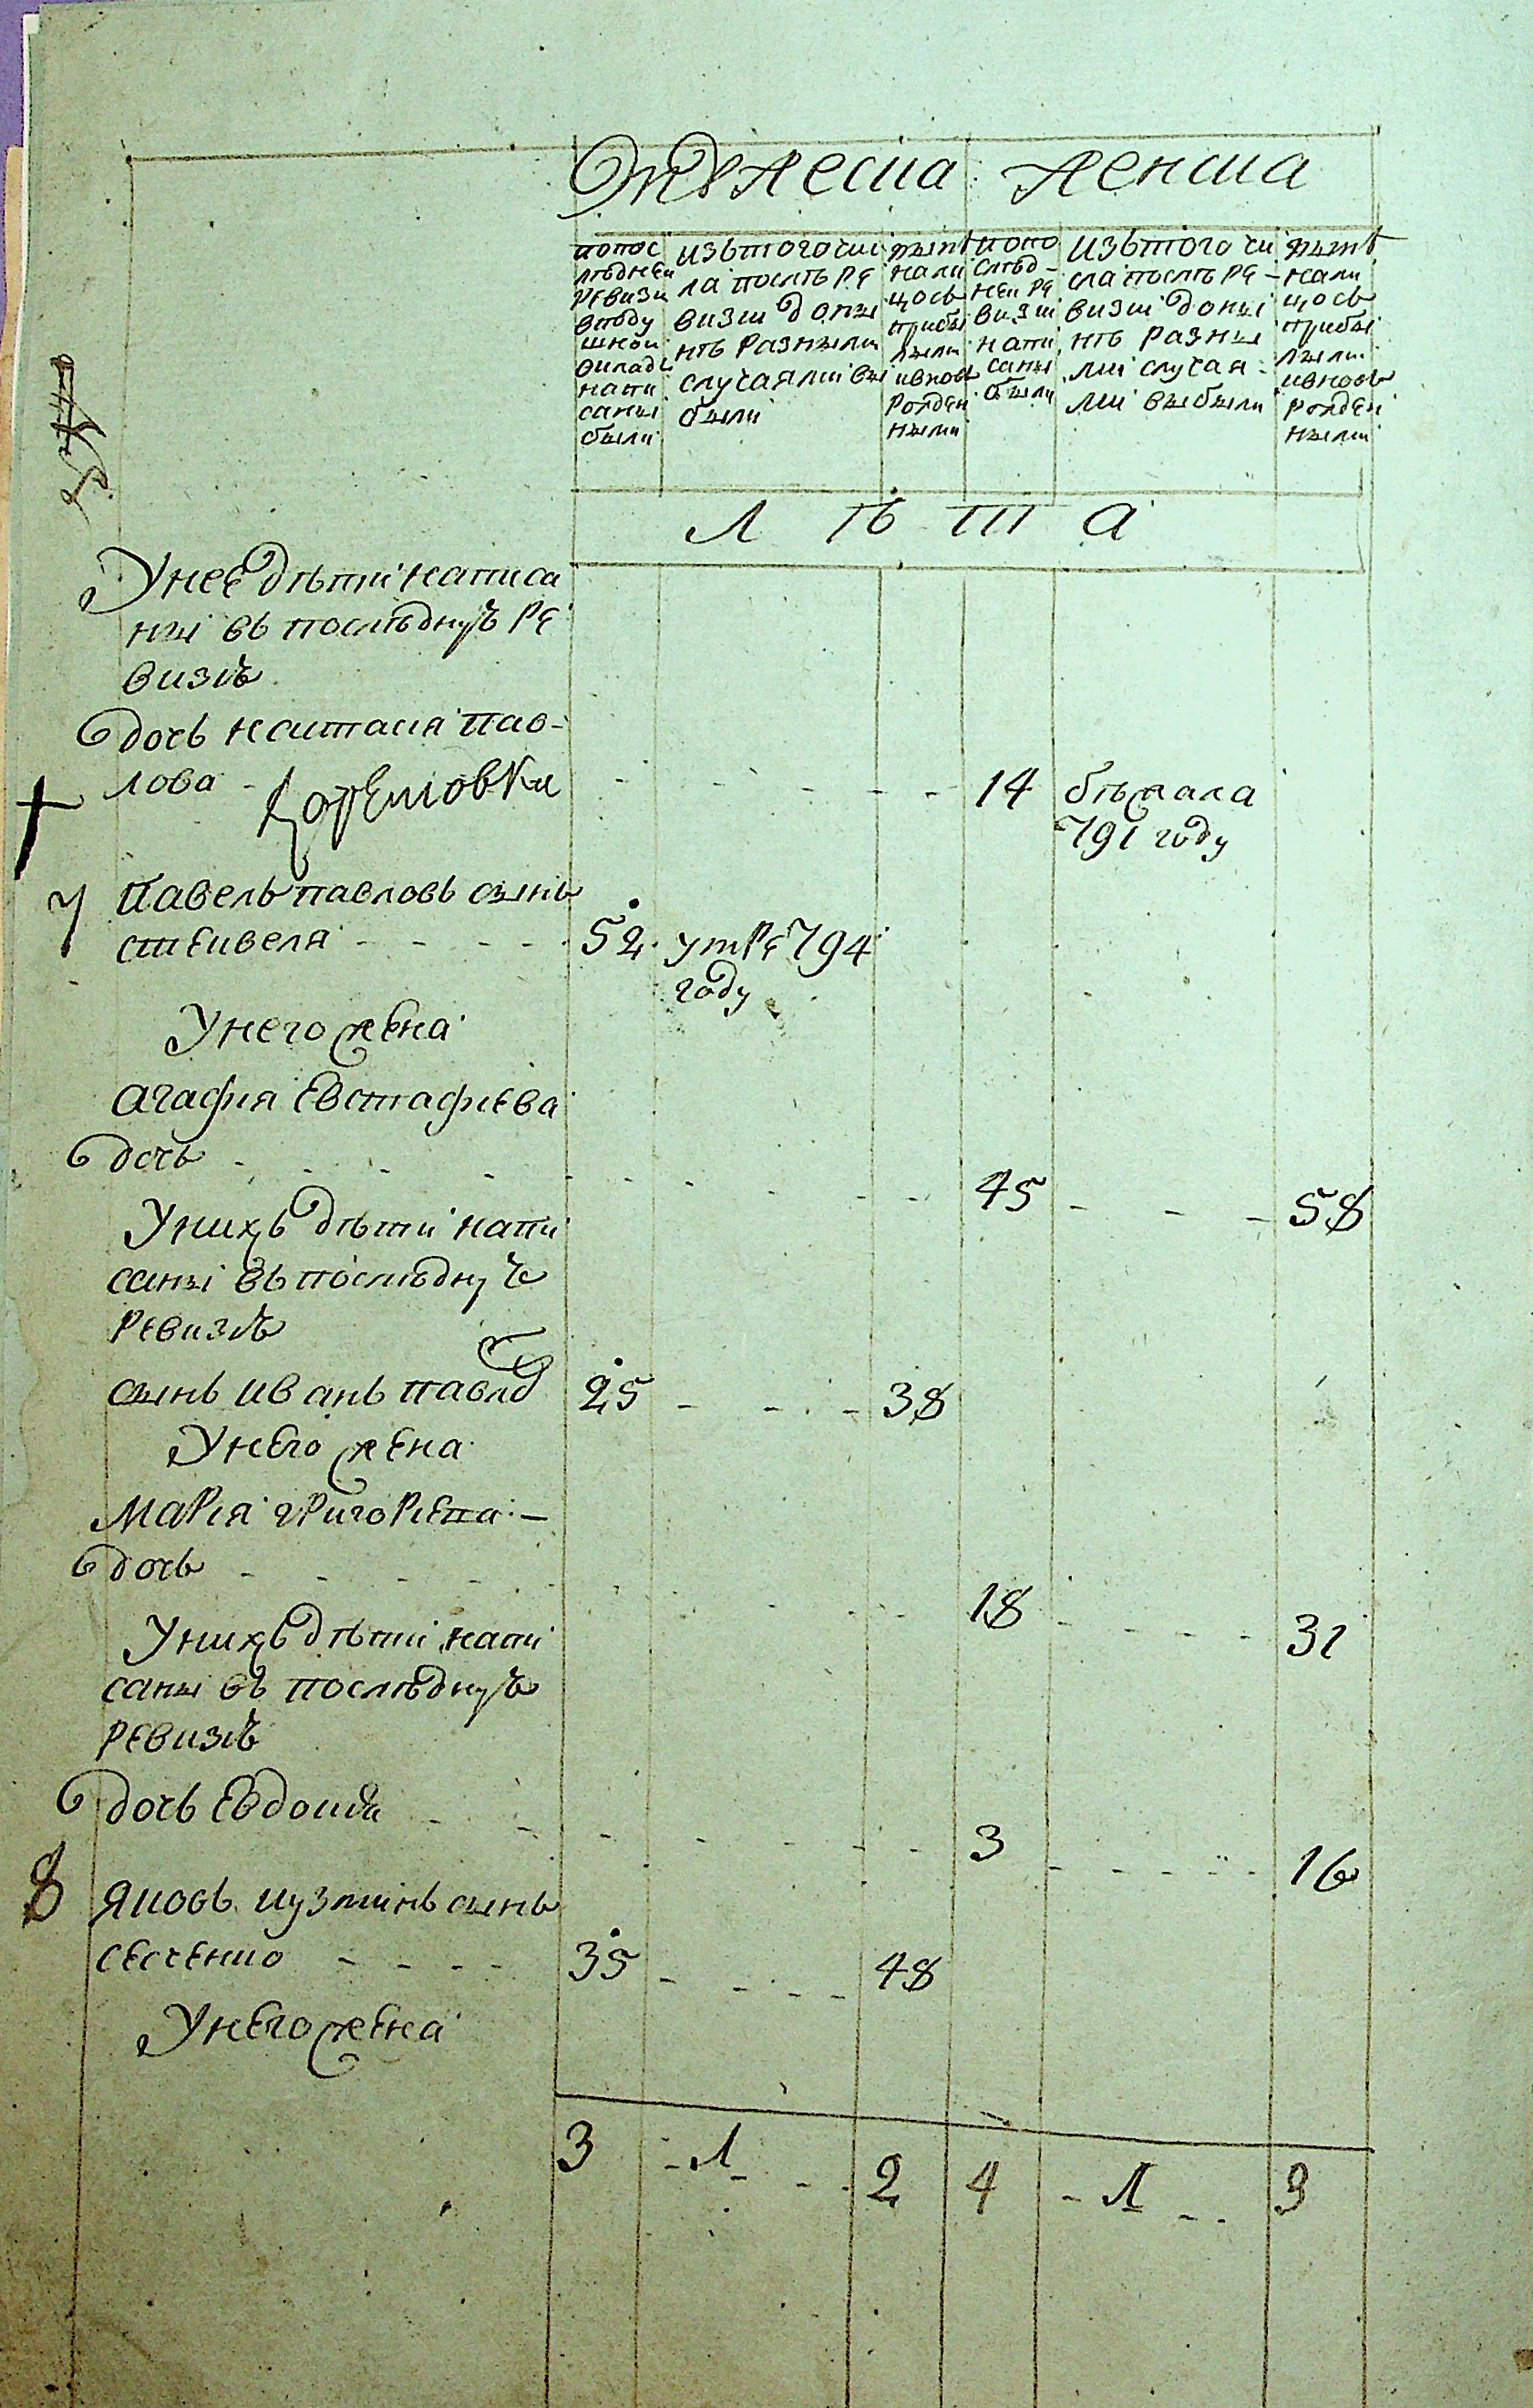 Мужеска женска
попос
лѣдней
ревизи
вподу
шной
окладъ
напи
саны
были
изътогочис
ла послѣ ре
визии доны
нѣ разными
случаями вы
были
нынѣ
нали
цось
прибы
лыми
ивновь
рожден
ными
попо
слѣд-
ней ре
визии
напи
саны
были
изътого чи
сла послѣ ре-
визии доны
нѣ разны
ми случая-
ми выбыли
нынѣ
нали
цось
прибы
лыми
ивновь
рожден
ными
Л ѣ т а
Унее дѣти написа
ны въ последнуъ ре
визiъ
дочь настасия пав-
лова - 14 бѣжала
791 году
7 Павелъ павловъ сынъ
стецкеля 52 умре 794
году
Унего жена
агафия Евстафиева
дочь - 45 - 58
Унихъ дѣти напи
саны въ последнуъ
ревизiъ
сынъ иванъ павло 25 - 38
Унего жена
Мариа григориева -
дочь - 18 - 31
Унихъ дѣти напи
саны въ последнуъ
ревизiъ
дочь Евдокия - 3 - 16
8 Яковъ кузминъ сынъ
35 - 48
Унего жена
3 - 1 - 2 4 - 1 - 3